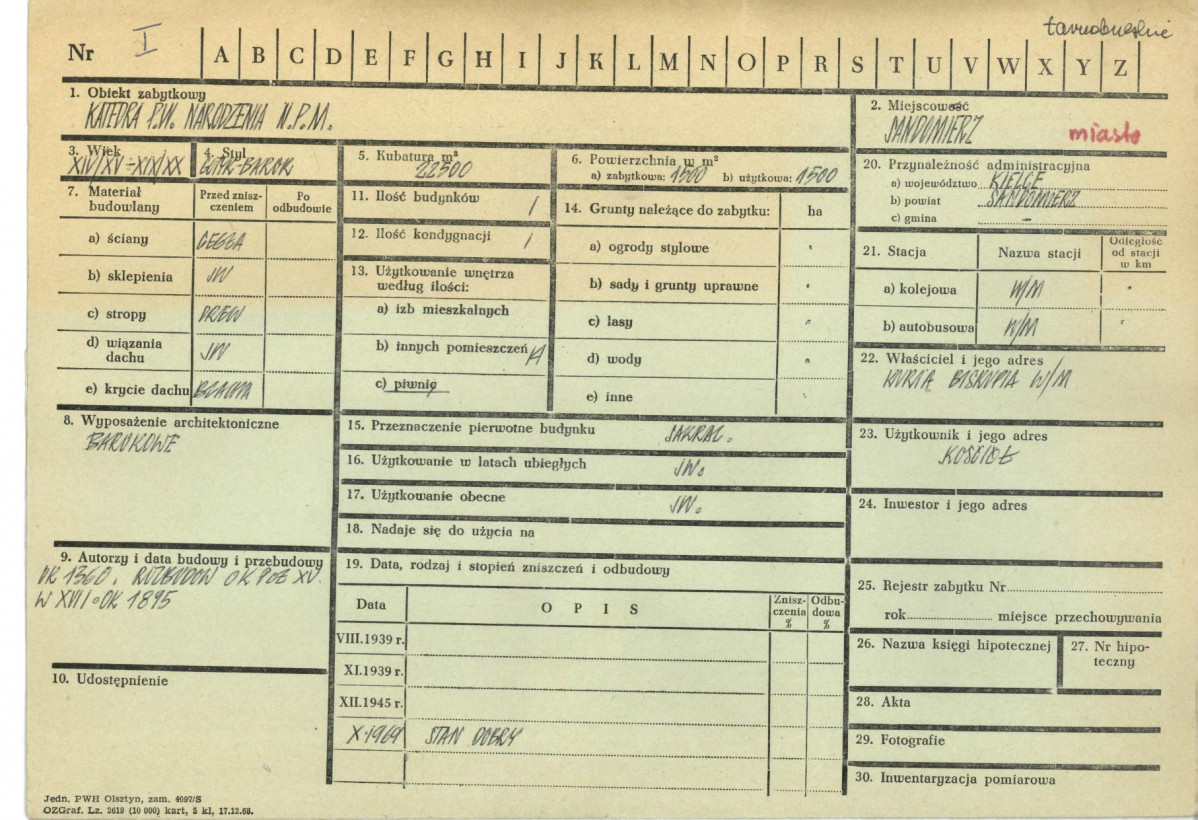 tarnobrzeskie
Nr I A B C D E F G H I J K L M N O P R S T U V W X Y Z
1. Obiekt zabytkowy
KATEDRA P.W. NARODZENIA N.P.M.
2. Miejscowość
SANDOMIERZ miasto
3. Wiek
XIV/XV-XIX/XX
4. Styl
GOTYK-BAROK
5. Kubatura m³
22500
6. Powierzchnia w m²
a) zabytkowa: 1500 b) użytkowa: 1500
20. Przynależność administracyjna
a) województwo KIELCE
b) powiat SANDOMIERZ
c) gmina -
7. Materiał budowlany
Przed znisz-
czeniem
Po
odbudowie
a) ściany CEGŁA
b) sklepienia JW
c) stropy DREW
d) wiązania
dachu JW
e) krycie dachu BLACHA
11. Ilość budynków 1
12. Ilość kondygnacji 1
13. Użytkowanie wnętrza
według ilości:
a) izb mieszkalnych
b) innych pomieszczeń
c) piwnic
14. Grunty należące do zabytku: ha
a) ogrody stylowe
b) sady i grunty uprawne
c) lasy "
d) wody "
e) inne
21. Stacja Nazwa stacji
Odległość
od stacji
w km
a) kolejowa W/M "
b) autobusowa W/M "
22. Właściciel i jego adres
KURIA BISKUPIA W/M
8. Wyposażenie architektoniczne
BAROKOWE
15. Przeznaczenie pierwotne budynku SAKRAL.
16. Użytkowanie w latach ubiegłych JW.
17. Użytkowanie obecne JW.
18. Nadaje się do użycia na
23. Użytkownik i jego adres
KOŚCIÓŁ
24. Inwestor i jego adres
9. Autorzy i data budowy i przebudowy
OK 1360. ROZBUDOW OK POŁ XV.
W XVII OK 1895
19. Data, rodzaj i stopień zniszczeń i odbudowy
Data O P I S
Znisz-
czenia
%
Odbu-
dowa
%
VIII.1939 r.
XI.1939 r.
XII.1945 r.
X.1969 STAN DOBRY
25. Rejestr zabytku Nr
rok miejsce przechowywania
26. Nazwa księgi hipotecznej
27. Nr hipo-
teczny
10. Udostępnienie
28. Akta
29. Fotografie
30. Inwentaryzacja pomiarowa
Jedn. PWH Olsztyn, zam. 4097/S
OZGraf. Lz. 3619 (10 000) kart, 5 kl, 17.12.68.